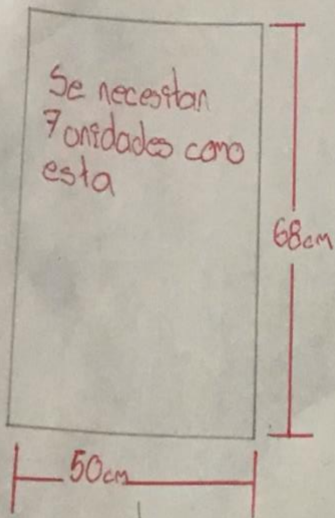 Se necesitan
7 unidades como
esta
68cm
50cm